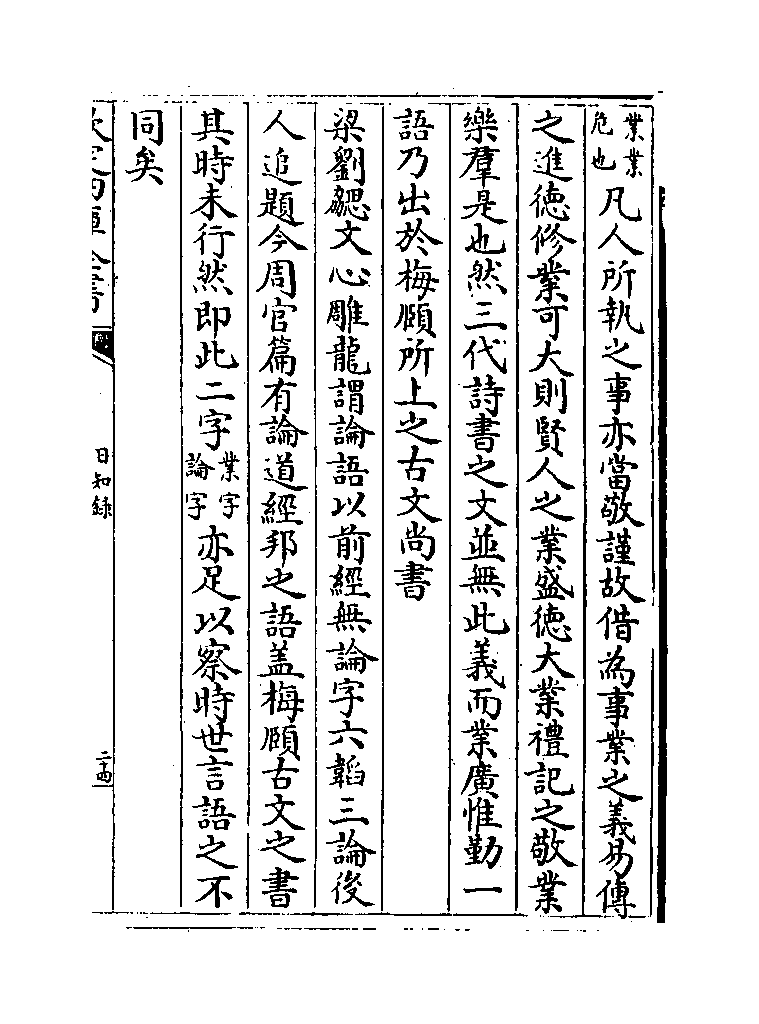 業業危也凡人所執之事亦當敬謹故借為事業之義易傳
之進徳修業可大則賢人之業盛徳大業禮記之敬業
樂羣是也然三代詩書之文並無此義而業廣惟勤一
語乃出於梅頤所上之古文尚書
梁劉勰文心雕龍謂論語以前經無論字六韜三論後
人追題今周官篇有論道經邦之語盖梅頤古文之書
其時未行然即此二字業字論字亦足以察時世言語之不
同矣
日知録
二十四